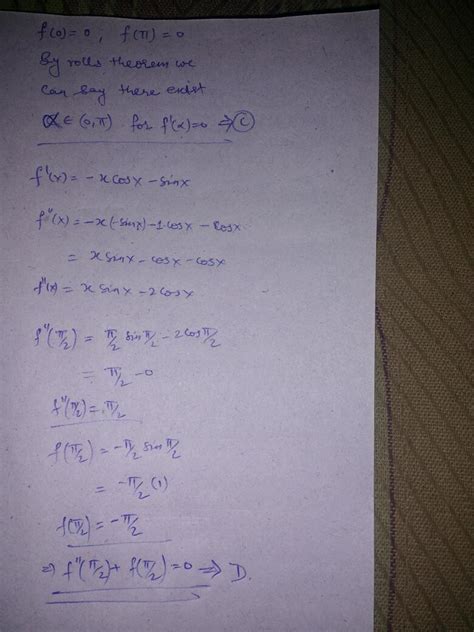 f(0)=0, f(π)=0
By rolls theorem we
can say there exist
α ∈ (0,π) for f'(α)=0 ⇒ C
f'(x) = -x cosx - sinx
f''(x) = -x(-sinx) - 1·cosx - cosx
= x sinx - cosx - cosx
f''(x) = x sinx - 2cosx
f''(π/2) = π/2 sin π/2 - 2cos π/2
= π/2 - 0
f''(π/2) = π/2
f(π/2) = -π/2 sin π/2
= -π/2 (1)
f(π/2) = -π/2
⇒ f''(π/2) + f(π/2) = 0 ⇒ D.